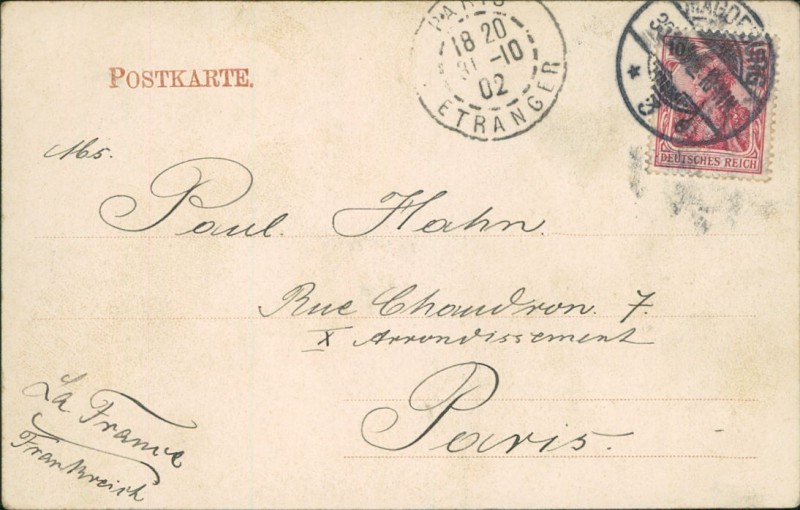 POSTKARTE.
PARIS
18 20
31 -10
02
ETRANGER
MAGDEBURG
* 3
DEUTSCHES REICH
Ms.
Paul. Hahn.
Rue Chaudron. 7.
X Arrondissement
Paris.
La France
Frankreich